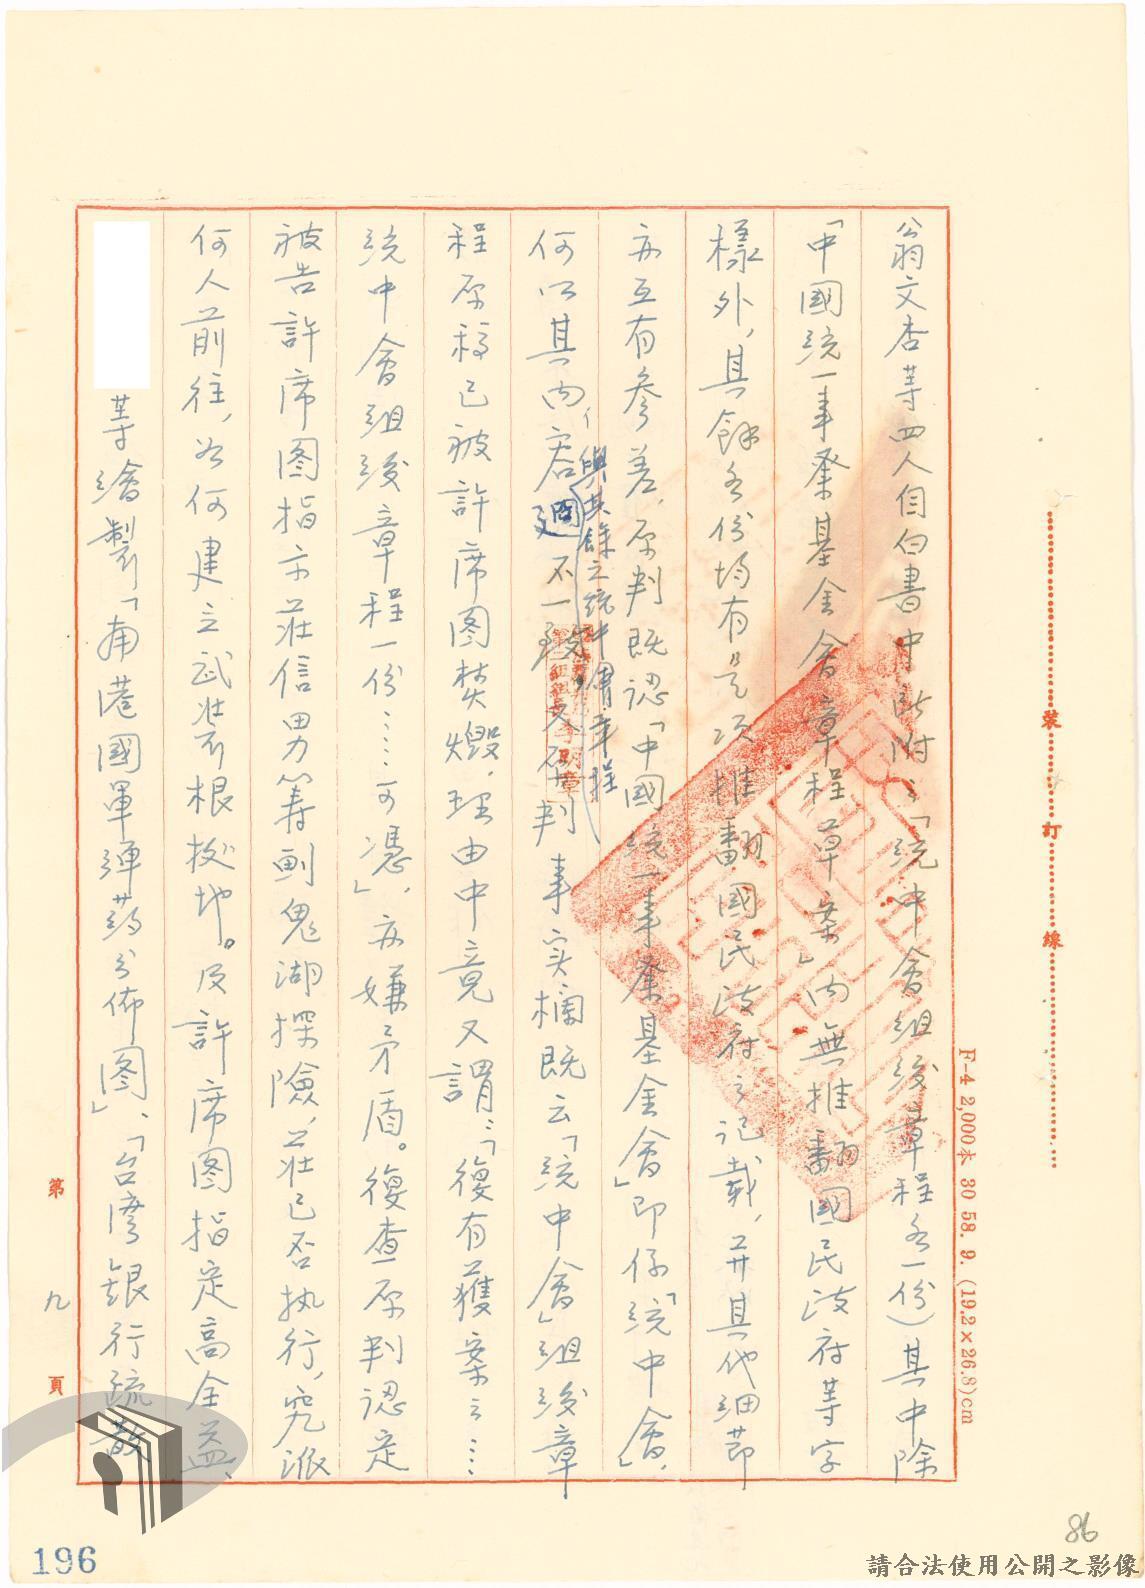 翁文杏等四人自白書中所附之「統中會組織章程各一份)其中除
「中國統一事業基金會章程草案」內無推翻國民政府等字
樣外,其餘各份均有是項推翻國民政府之記載,并其他細節
亦互有參差,原判既認「中國統一事業基金會」即係「統中會」,
何以其內容,與其餘之統中會章程迥不一致,又原判事实欄既云「統中會」組織章
程原稿已被許席图焚燬,理由中竟又謂:「復有獲案之……
統中會組織章程一份……可憑」,亦嫌矛盾。復查原判認定
被告許席图指示莊信男籌劃鬼湖探險,莊已否执行,究派
何人前往,如何建立武裝根據地。及許席图指定高金益、
等繪製「南港國軍弹药分佈图」、「台湾銀行疏散
第九頁
裝訂線
F-4 2,000本 30 58. 9. (19.2×26.8)cm
86
196
請合法使用公開之影像